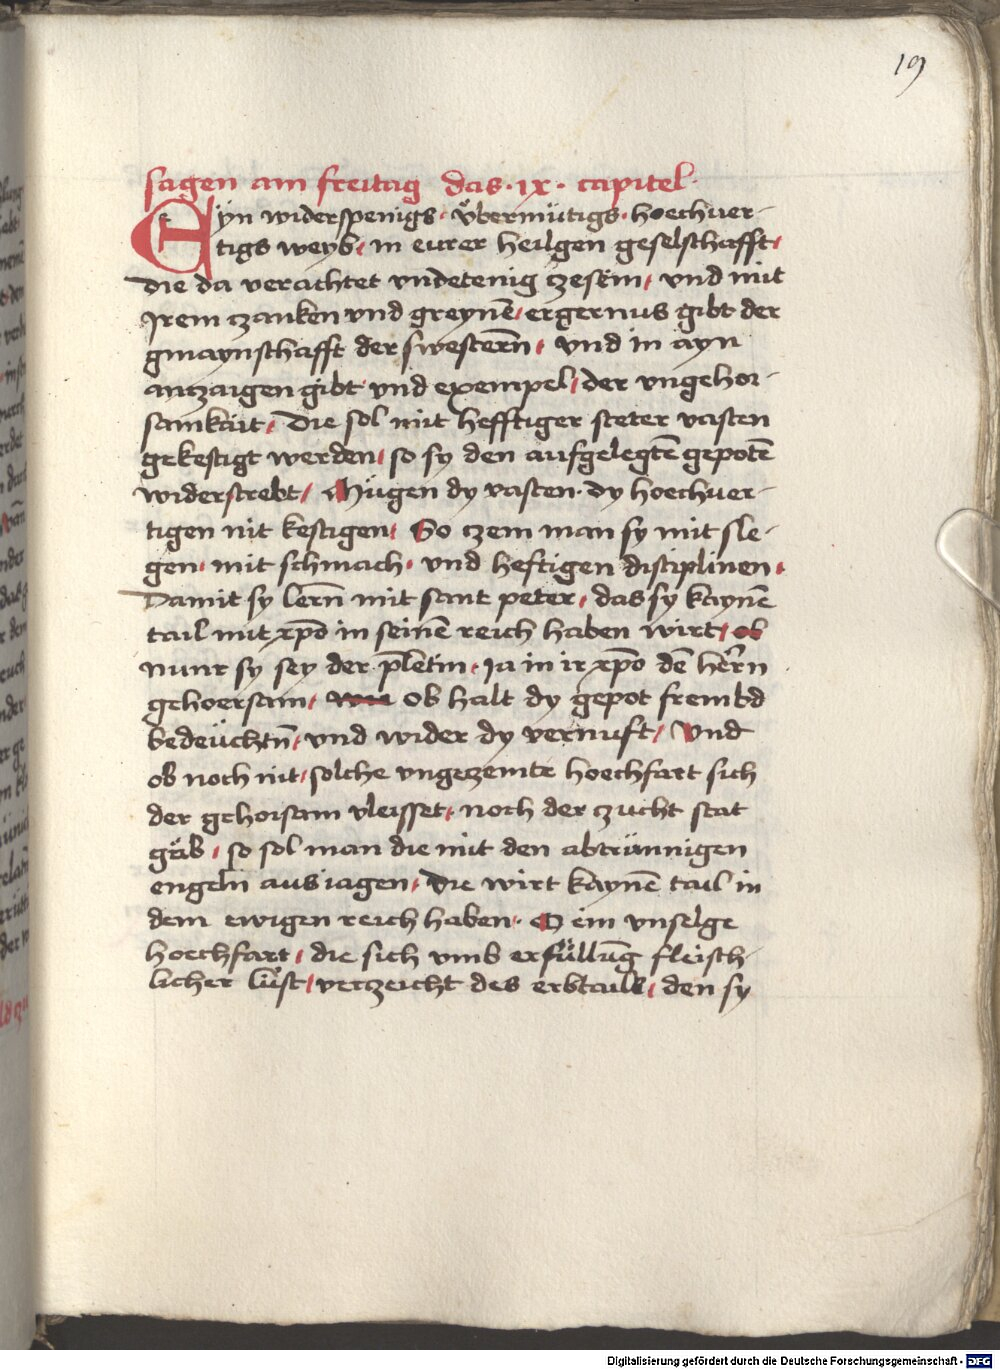 19
sagen am freitag das · ix · capitel ·
Eyn widerspenigs · übermütigs · hoechuer-
tigs weyb, in eurer heilgen geselschafft,
die da verachtet vndetenig ze sein, vnd mit
Irem czanken vnd greynē, ergernus gibt der
gmaynschafft der swesterñ, vnd in ayn
anczaigen gibt vnd exempel, der vngehor-
samkait, Die sol mit hefftiger steter vasten
gekestigt werden, so sy den aufgelegtē gepotē
widerstrebt, Mügen dy vasten · dy hoechuer-
tigen nit kestigen, So czem man sy mit sle-
gen, mit schmach, vnd heftigen disciplinen,
Damit sy lerñ mit sant peter, das sy kaynē
tail mit xp̄o in seinē reich haben wirt, ob
nunr sy sey der p̄letin, Ia in ir xp̄o dē herrn
gehoersam, ob halt dy gepot frembd
bedeüchtñ, vnd wider dy vernuft, Vnd
ob noch nit, solche vngezemte hoechfart sich
der gehorsam vleisset, noch der zucht stat
gäb, so sol man die mit den abtrünnigen
engeln aus iagen, die wirt kaynē tail in
dem ewigen reich haben, O ein vnselge
hoechfart, die sich vmb erfüllūg fleisch-
licher lüst, verzeicht des erbtails, den sy
Digitalisierung gefördert durch die Deutsche Forschungsgemeinschaft - DFG